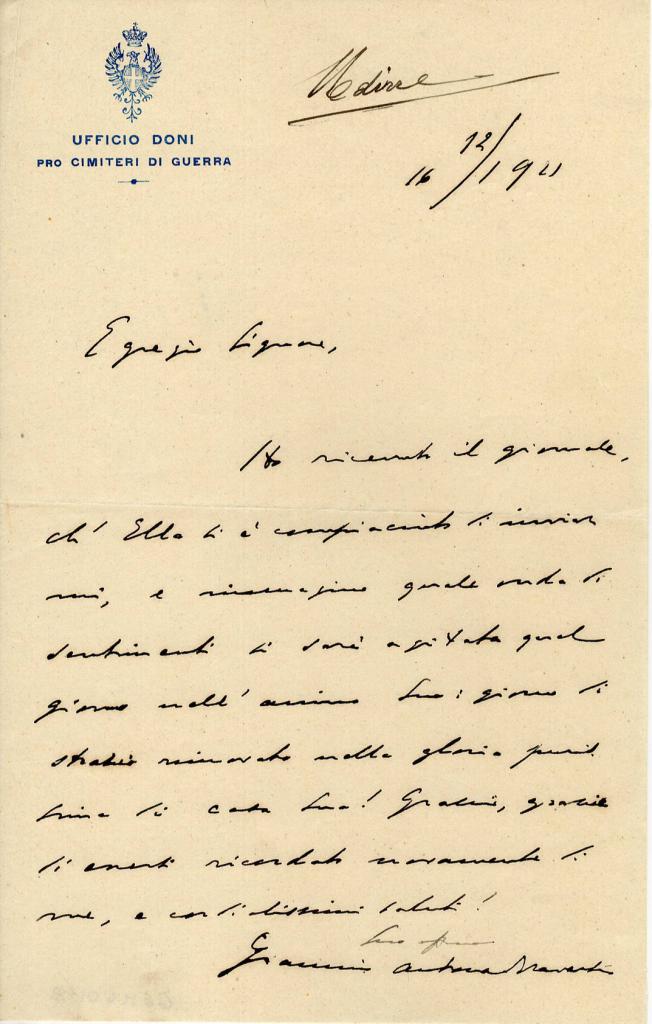 UFFICIO DONI
PRO CIMITERI DI GUERRA
Udine
16 12/1921
Egregio Signore,
Ho ricevuto il giornale,
ch' Ella si è compiaciuto di inviar
mi, e immagino quale onda di
sentimenti si sarà agitata quel
giorno nell' animo Suo: giorno di
strazio rinnovato nella gloria
di casa Sua! Grazie, grazie
di essersi ricordato novamente di
me, e cordialissimi saluti!
Suo
Giannino Antona Traversi